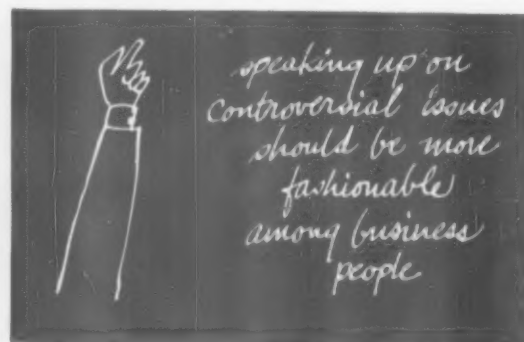 speaking up on
controversial issues
should be more
fashionable
among business
people